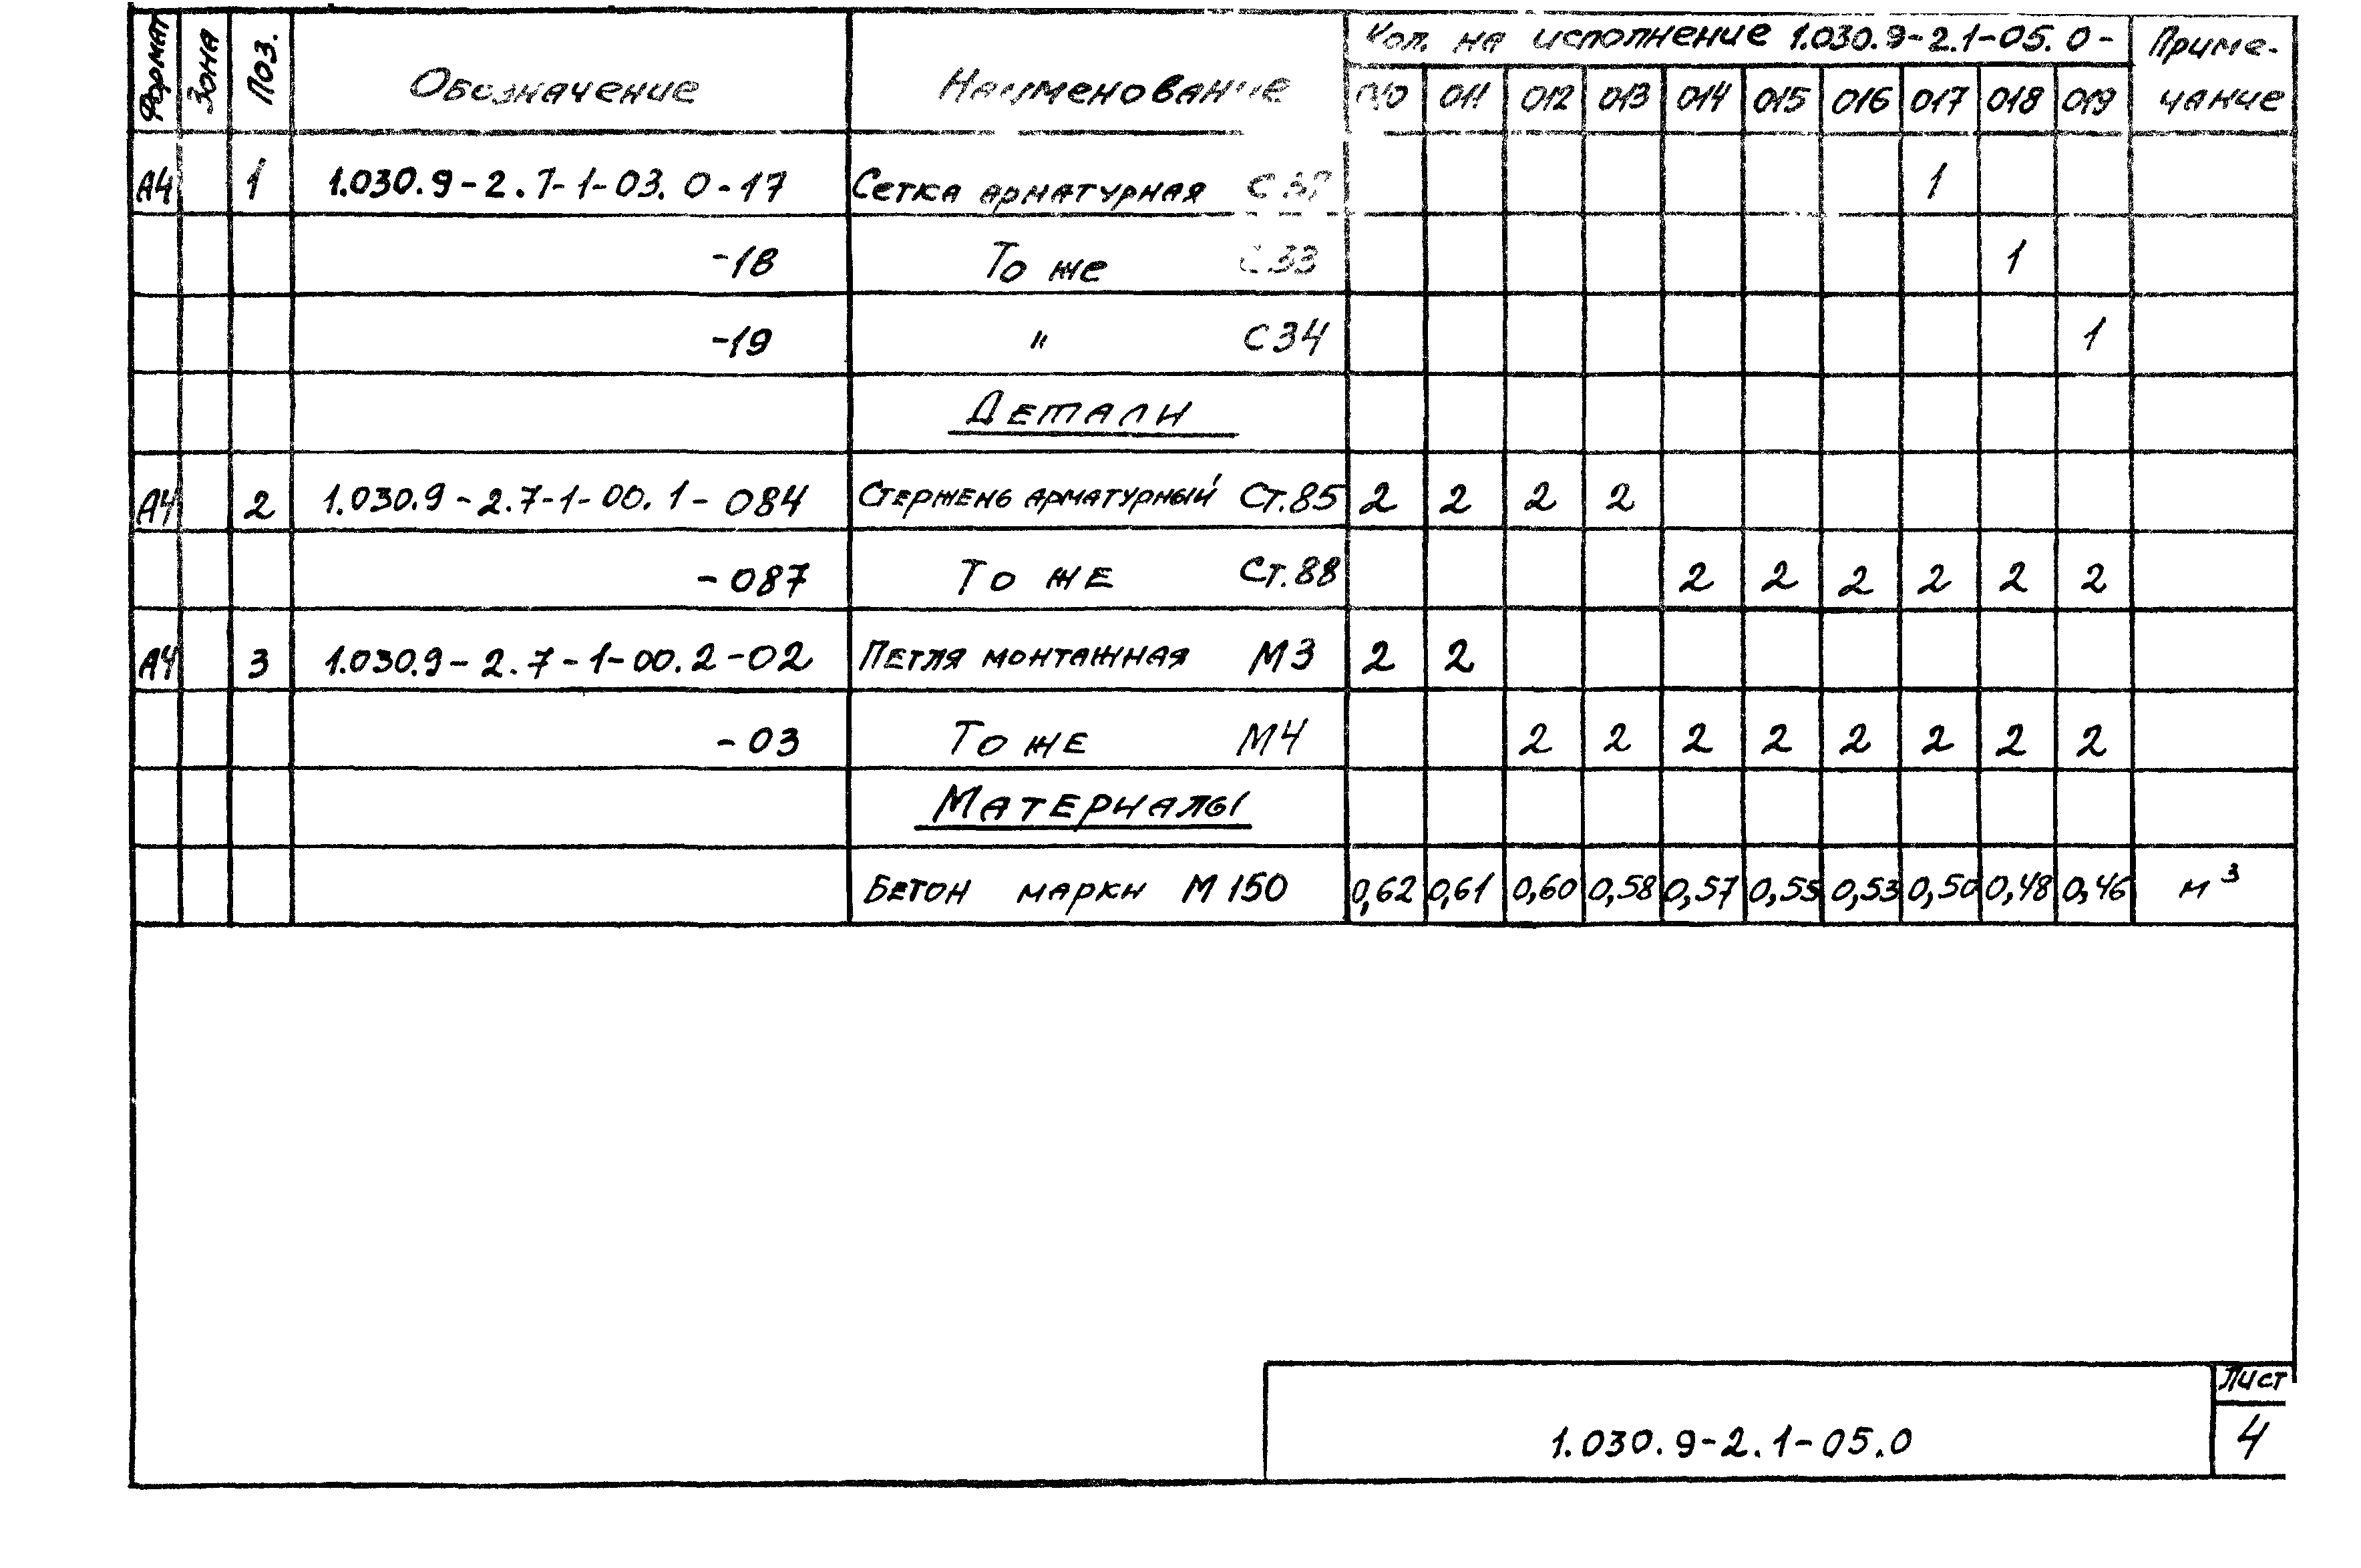 Формат Зона Поз. Обозначение Наименование Кол. на исполнение 1.030.9-2.1-05.0- Приме-
чание
010 011 012 013 014 015 016 017 018 019
А4 1 1.030.9-2.7-1-03.0-17 Сетка арматурная 1
-18 То же С33 1
-19 " С34 1
Детали
А4 2 1.030.9-2.7-1-00.1-084 Стержень арматурный Ст.85 2 2 2 2
-087 То же Ст.88 2 2 2 2 2 2
А4 3 1.030.9-2.7-1-00.2-02 Петля монтажная М3 2 2
-03 То же М4 2 2 2 2 2 2 2 2
Материалы
Бетон марки М150 0,62 0,61 0,60 0,58 0,57 0,55 0,53 0,50 0,48 0,46 м³
1.030.9-2.1-05.0
Лист
4